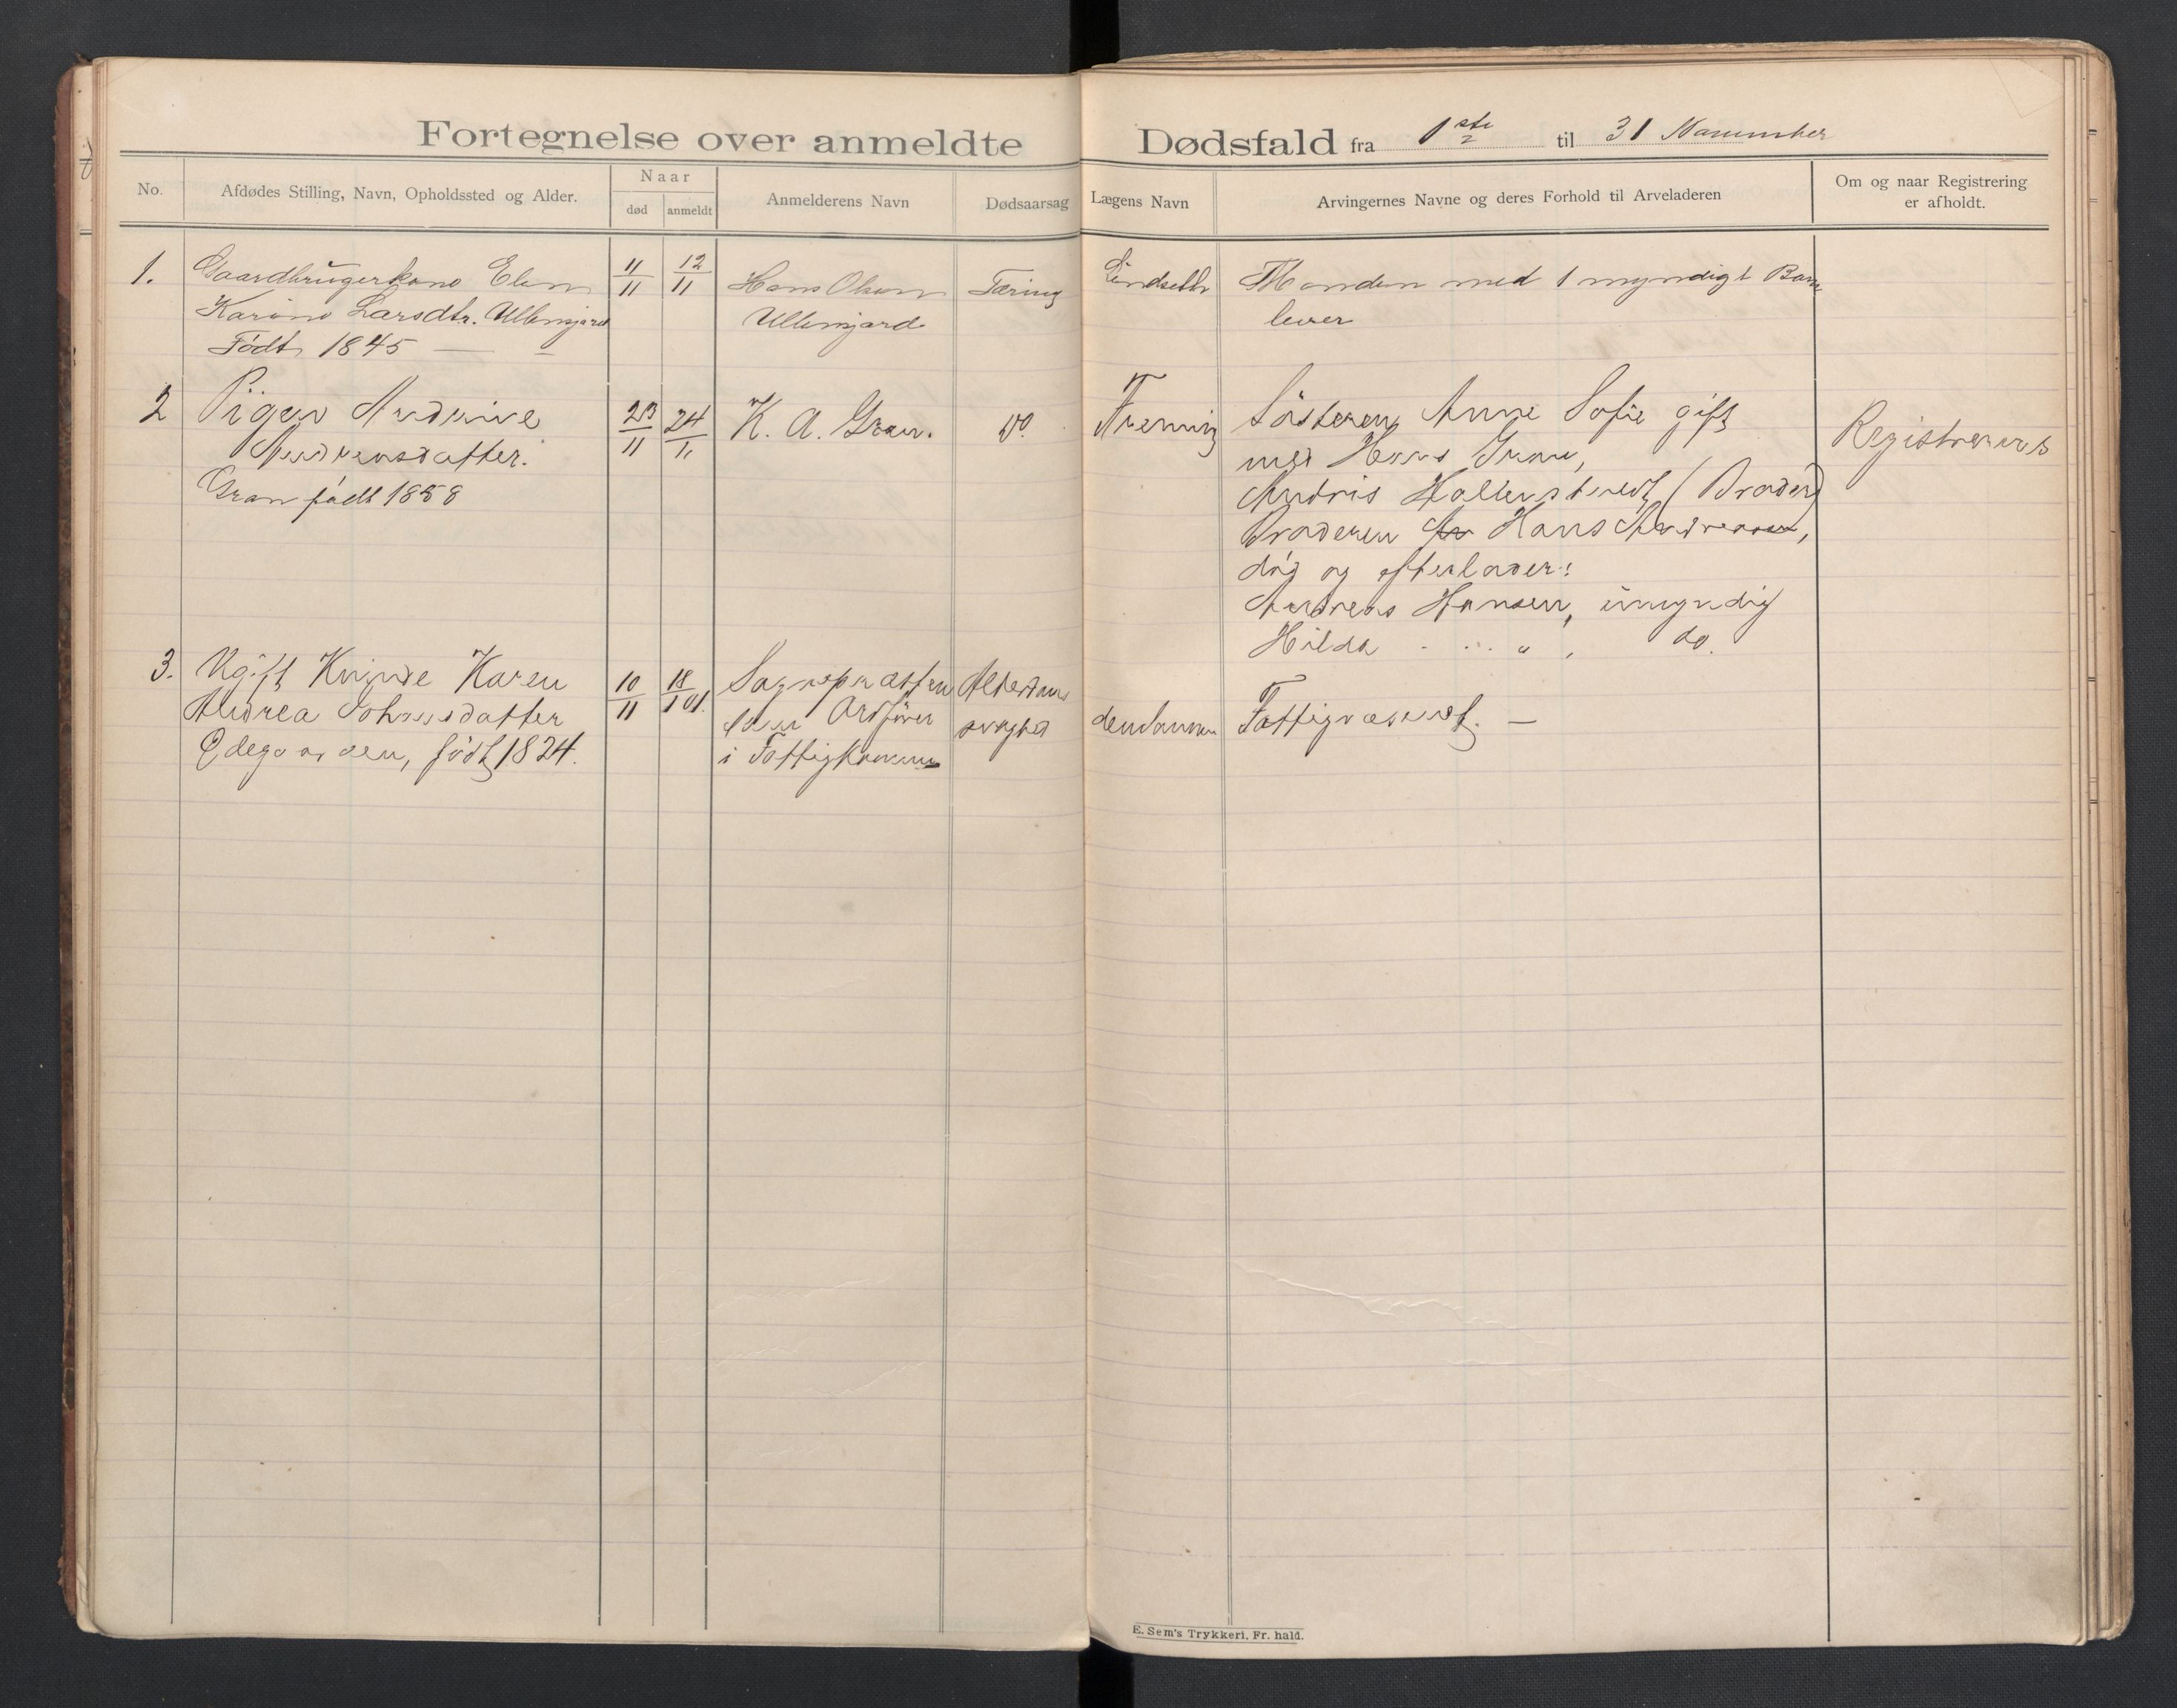 Fortegnelse over anmeldte Dødsfald fra 1ste til 31 November
No.
Afdødes Stilling, Navn, Opholdssted og Alder.
Naar
død
anmeldt
Anmelderens Navn
Dødsaarsag
Lægens Navn
Arvingernes Navne og deres Forhold til Arveladeren
Om og naar Registrering
er afholdt.
1.
Gaardbrugerkone Elen
Karine Larsdtr. Ullensjord
Født 1845 — –
11/11
12/11
Hans Olsen
Ullensjord
Tæring
Lindseth
Manden med 1 myndigt Barn
lever
2
Pigen Andrine
Andreasdatter.
Gran født 1858
23/11
24/11
K. A. Gran.
do.
Søsteren Anne Sofie gift
med Hans
Andris (Broder)
Broderen Hans Andreasen,
død og efterlader:
Andreas Hansen, umyndig
Hilda " , do.
Registreres
3.
Ugift Kvinde Karen
Andrea Johansdatter
Ødegaarden, født 1824.
10/11
18/1 01.
Sognepræsten
som Ordfører
i Fattigkomm
Alderdoms
svaghed
Fattigvæsenet. —
E. Sem's Trykkeri, Fr. hald.